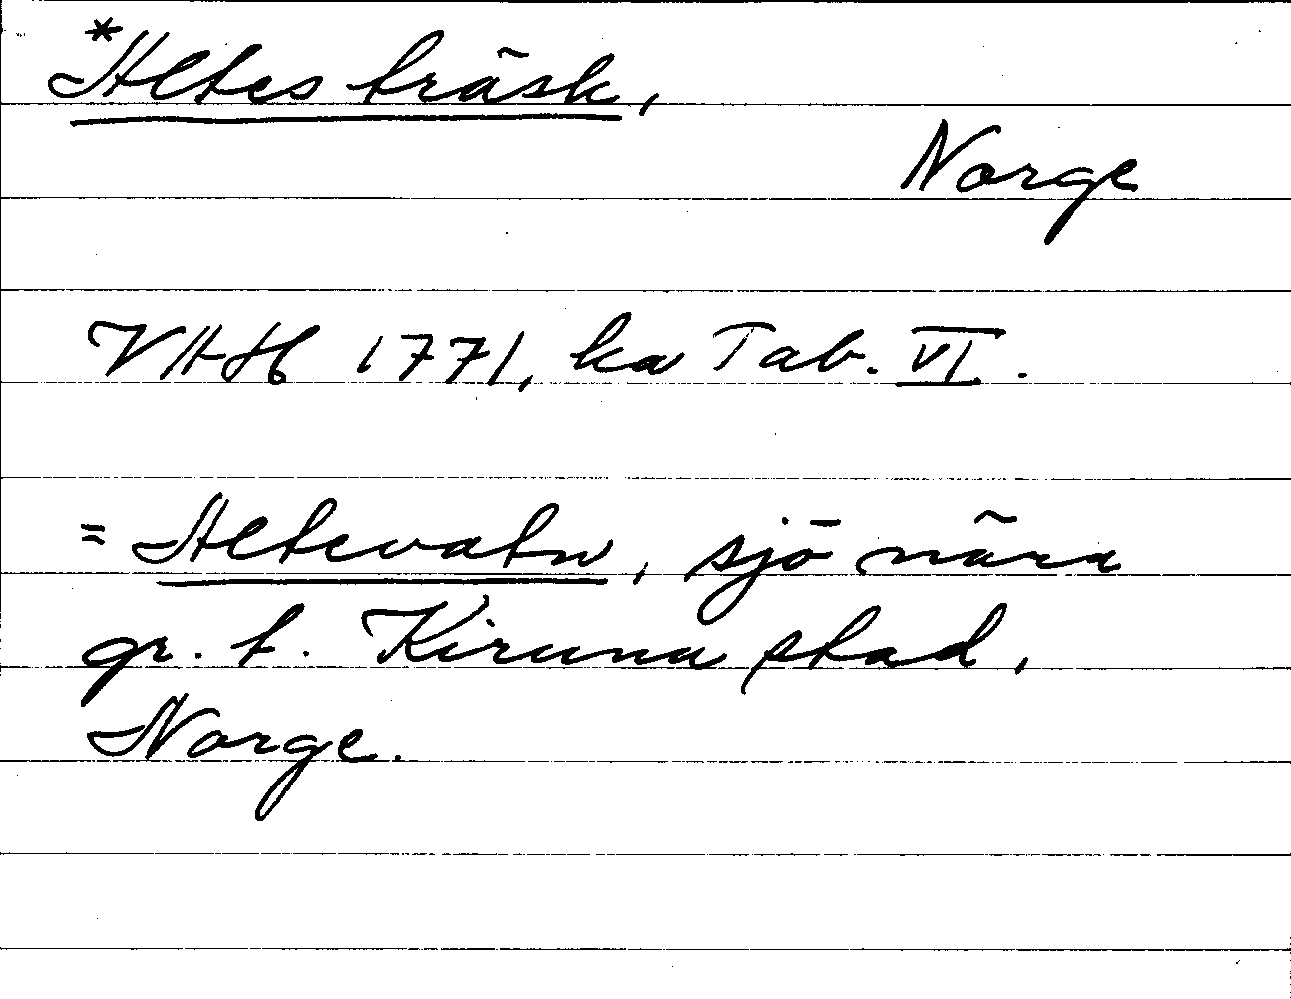 *Altes träsk,
Norge
VAH 1771, ka Tab. VI.
= Altevatn, sjö nära
gr. t. Kiruna stad,
Norge.